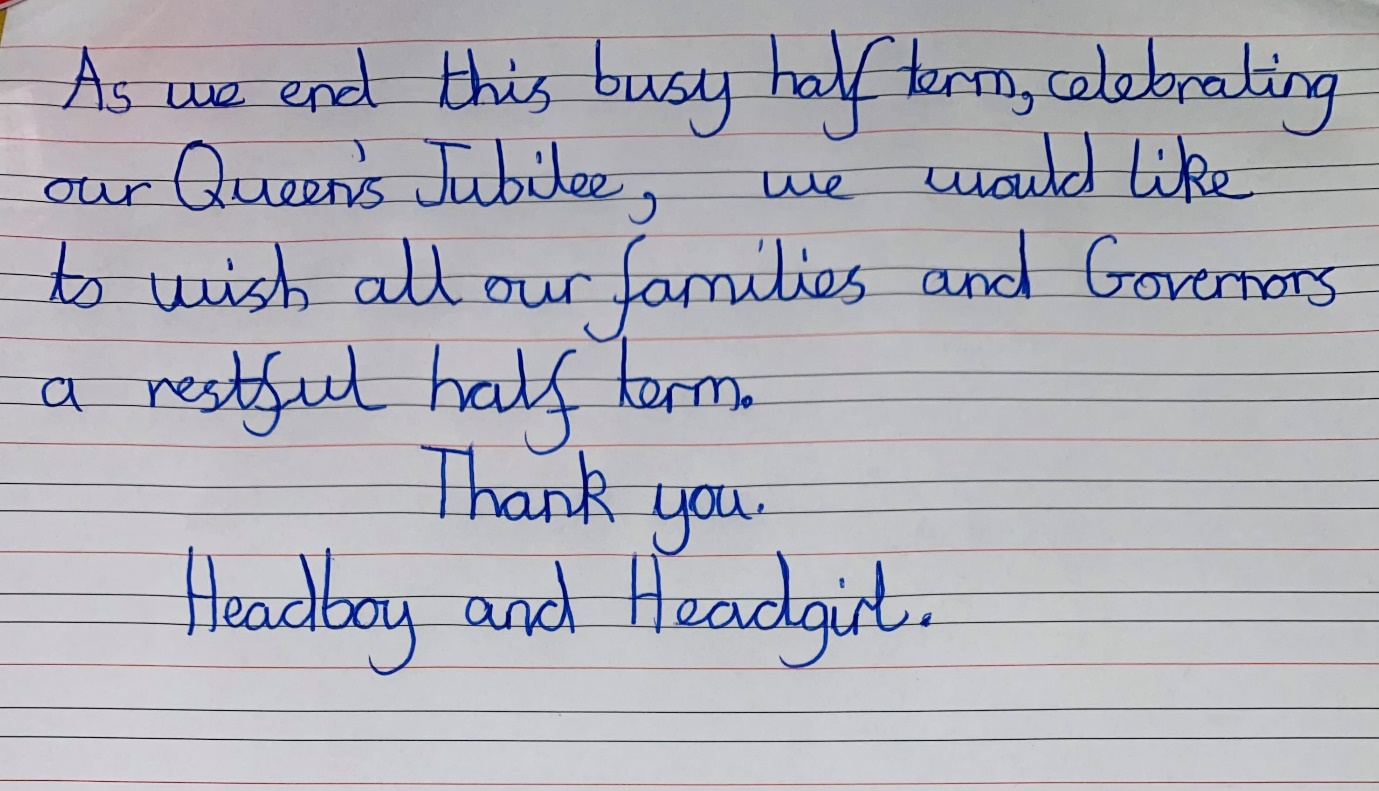 As we end this busy half term, celebrating
our Queen's Jubilee, we would like
to wish all our families and Governors
a restful half term.
Thank you.
Headboy and Headgirl.